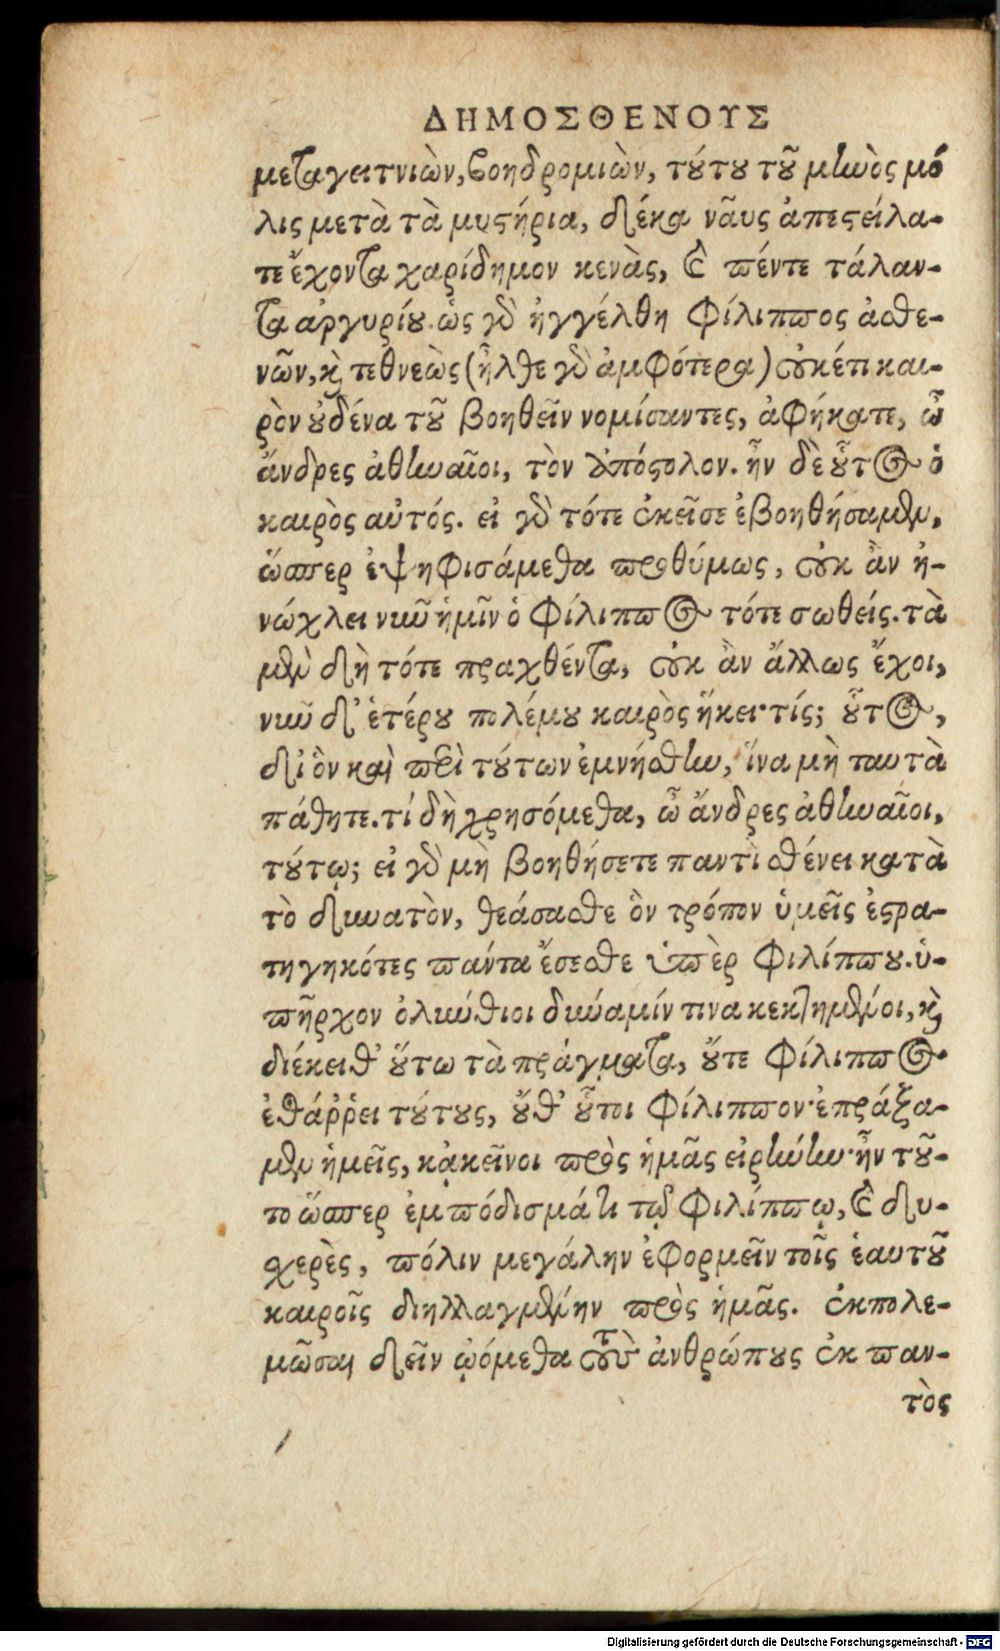 ΔΗΜΟΣΘΕΝΟΥΣ
μεταγειτνιὼν, βοηδρομιὼν, τούτου τοῦ μηνὸς μό
λις μετὰ τὰ μυστήρια, δέκα ναῦς ἀπεστείλα-
τε ἔχοντα χαρίδημον κενὰς, καὶ πέντε τάλαν-
τα ἀργυρίου. ὡς γὰρ ἠγγέλθη Φίλιππος ἀσθε-
νῶν, καὶ τεθνεὼς (ἦλθε γὰρ ἀμφότερα) οὐκέτι και-
ρὸν οὐδένα τοῦ βοηθεῖν νομίσαντες, ἀφήκατε, ὦ
ἄνδρες ἀθηναῖοι, τὸν ἀπόστολον. ἦν δὲ οὗτος ὁ
καιρὸς αὐτός. εἰ γὰρ τότε ἐκεῖσε ἐβοηθήσαμεν,
ὥσπερ ἐψηφισάμεθα προθύμως, οὐκ ἂν ἠ-
νώχλει νῦν ἡμῖν ὁ Φίλιππος τότε σωθείς. τὰ
μὲν δὴ τότε πραχθέντα, οὐκ ἂν ἄλλως ἔχοι,
νῦν δ' ἑτέρου πολέμου καιρὸς ἥκει· τίς; οὗτος,
δι' ὃν καὶ περὶ τούτων ἐμνήσθην, ἵνα μὴ ταυτὰ
πάθητε. τί δὴ χρησόμεθα, ὦ ἄνδρες ἀθηναῖοι,
τούτῳ; εἰ γὰρ μὴ βοηθήσετε παντὶ σθένει κατὰ
τὸ δυνατὸν, θεάσασθε ὃν τρόπον ὑμεῖς ἐστρα-
τηγηκότες πάντα ἔσεσθε ὑπὲρ Φιλίππου. ὑ-
πῆρχον ὀλύνθιοι δύναμίν τινα κεκτημένοι, καὶ
διέκειθ' οὕτω τὰ πράγματα, οὔτε Φίλιππος
ἐθάῤῥει τούτους, οὔθ' οὗτοι Φίλιππον· ἐπράξα-
μεν ἡμεῖς, κᾀκεῖνοι πρὸς ἡμᾶς εἰρήνην· ἦν τοῦ-
το ὥσπερ ἐμπόδισμά τι τῷ Φιλίππῳ, καὶ δυ-
χερὲς, πόλιν μεγάλην ἐφορμεῖν τοῖς ἑαυτοῦ
καιροῖς διηλλαγμένην πρὸς ἡμᾶς. ἐκπολε-
μῶσαι δεῖν ᾠόμεθα τοὺς ἀνθρώπους ἐκ παν-
τὸς
Digitalisierung gefördert durch die Deutsche Forschungsgemeinschaft - DFG